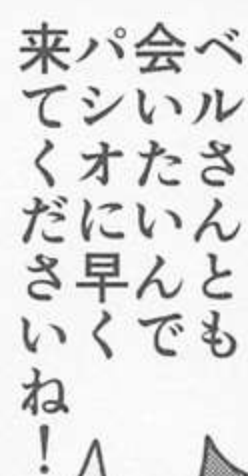 ベルさんとも
会いたいんで
パシオに早く
来てくださいね！